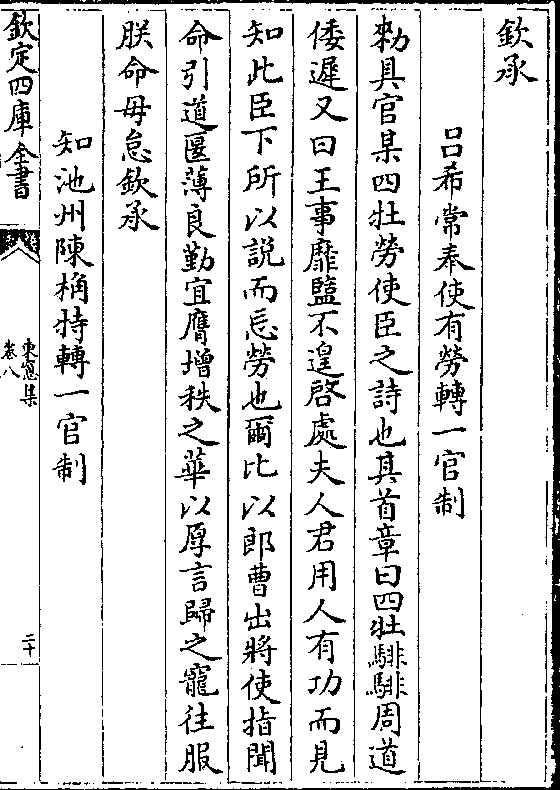 欽承
吕希常奉使有勞轉一官制
勑具官某四牡勞使臣之詩也其首章曰四牡騑騑周道
倭遲又曰王事靡盬不遑啓處夫人君用人有功而見
知此臣下所以説而忘勞也爾比以郎曹出將使指聞
命引道匽薄良勤宜膺增秩之華以厚言歸之寵往服
朕命毋怠欽承
知池州陳桷特轉一官制
欽定四庫全書
東窻集
卷八
二十